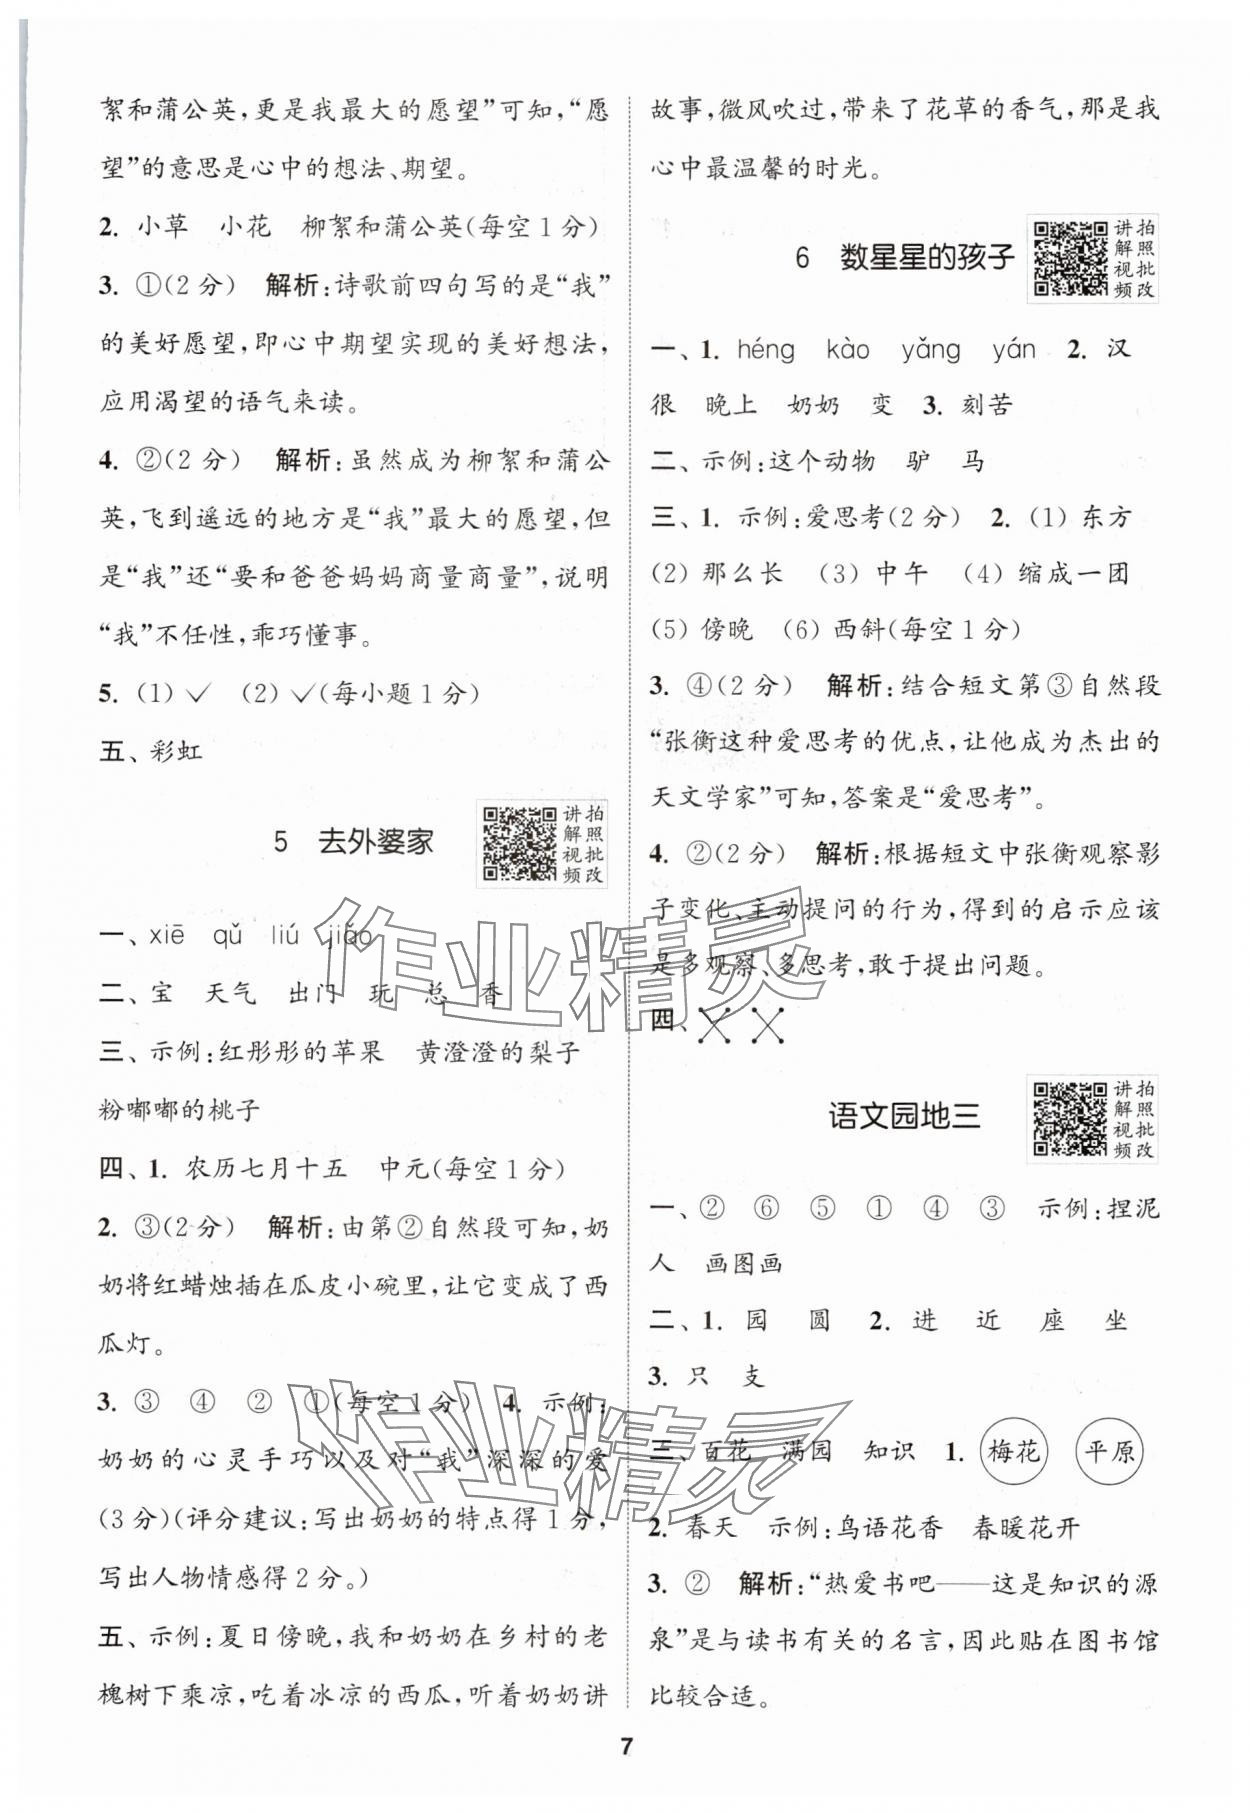 絮和蒲公英，更是我最大的愿望”可知，“愿
望”的意思是心中的想法、期望。
2. 小草　小花　柳絮和蒲公英（每空1分）
3. ①（2分）　解析：诗歌前四句写的是“我”
的美好愿望，即心中期望实现的美好想法，
应用渴望的语气来读。
4. ②（2分）　解析：虽然成为柳絮和蒲公
英，飞到遥远的地方是“我”最大的愿望，但
是“我”还“要和爸爸妈妈商量商量”，说明
“我”不任性，乖巧懂事。
5. （1）✓　（2）✓（每小题1分）
五、彩虹
5　去外婆家
讲拍
解照
视批
频改
一、xiē　qǔ　liú　jiǎo
二、宝　天气　出门　玩　总　香
三、示例：红彤彤的苹果　黄澄澄的梨子
粉嘟嘟的桃子
四、1. 农历七月十五　中元（每空1分）
2. ③（2分）　解析：由第②自然段可知，奶
奶将红蜡烛插在瓜皮小碗里，让它变成了西
瓜灯。
3. ③　④　②　①（每空1分）　4. 示例：
奶奶的心灵手巧以及对“我”深深的爱
（3分）（评分建议：写出奶奶的特点得1分，
写出人物情感得2分。）
五、示例：夏日傍晚，我和奶奶在乡村的老
槐树下乘凉，吃着冰凉的西瓜，听着奶奶讲
故事，微风吹过，带来了花草的香气，那是我
心中最温馨的时光。
6　数星星的孩子
讲拍
解照
视批
频改
一、1. héng　kào　yǎng　yán　2. 汉
很　晚上　奶奶　变　3. 刻苦
二、示例：这个动物　驴　马
三、1. 示例：爱思考（2分）　2. （1）东方
（2）那么长　（3）中午　（4）缩成一团
（5）傍晚　（6）西斜（每空1分）
3. ④（2分）　解析：结合短文第③自然段
“张衡这种爱思考的优点，让他成为杰出的
天文学家”可知，答案是“爱思考”。
4. ②（2分）　解析：根据短文中张衡观察影
子变化、主动提问的行为，得到的启示应该
是多观察、多思考，敢于提出问题。
四、
语文园地三
讲拍
解照
视批
频改
一、②　⑥　⑤　①　④　③　示例：捏泥
人　画图画
二、1. 园　圆　2. 进　近　座　坐
3. 只　支
三、百花　满园　知识　1. 梅花　平原
2. 春天　示例：鸟语花香　春暖花开
3. ②　解析：“热爱书吧——这是知识的源
泉”是与读书有关的名言，因此贴在图书馆
比较合适。
作业精灵
作业精灵
7